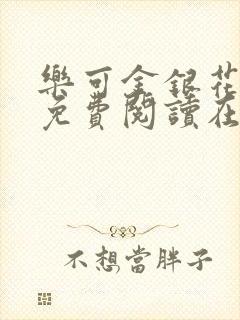 樂可金銀花
免費閱讀在
不想當胖子